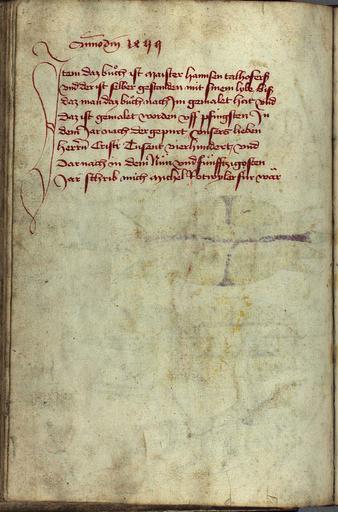 Item daz bůch ist maister hannsen talhoferß
vnd der ist selber gestanden mit sinem lybe biß
daz man daz bůch nach Im gemalet hat vnd
Daz ist gemalet worden vff pfingsten In
dem Jar nach der gepurt vnsers lieben
herrn Cristi Tusent vierhundert vnd
Darnach in dem Nün vnd fünfftzigosten
Jar schrib mich michel Rotwyler für wär